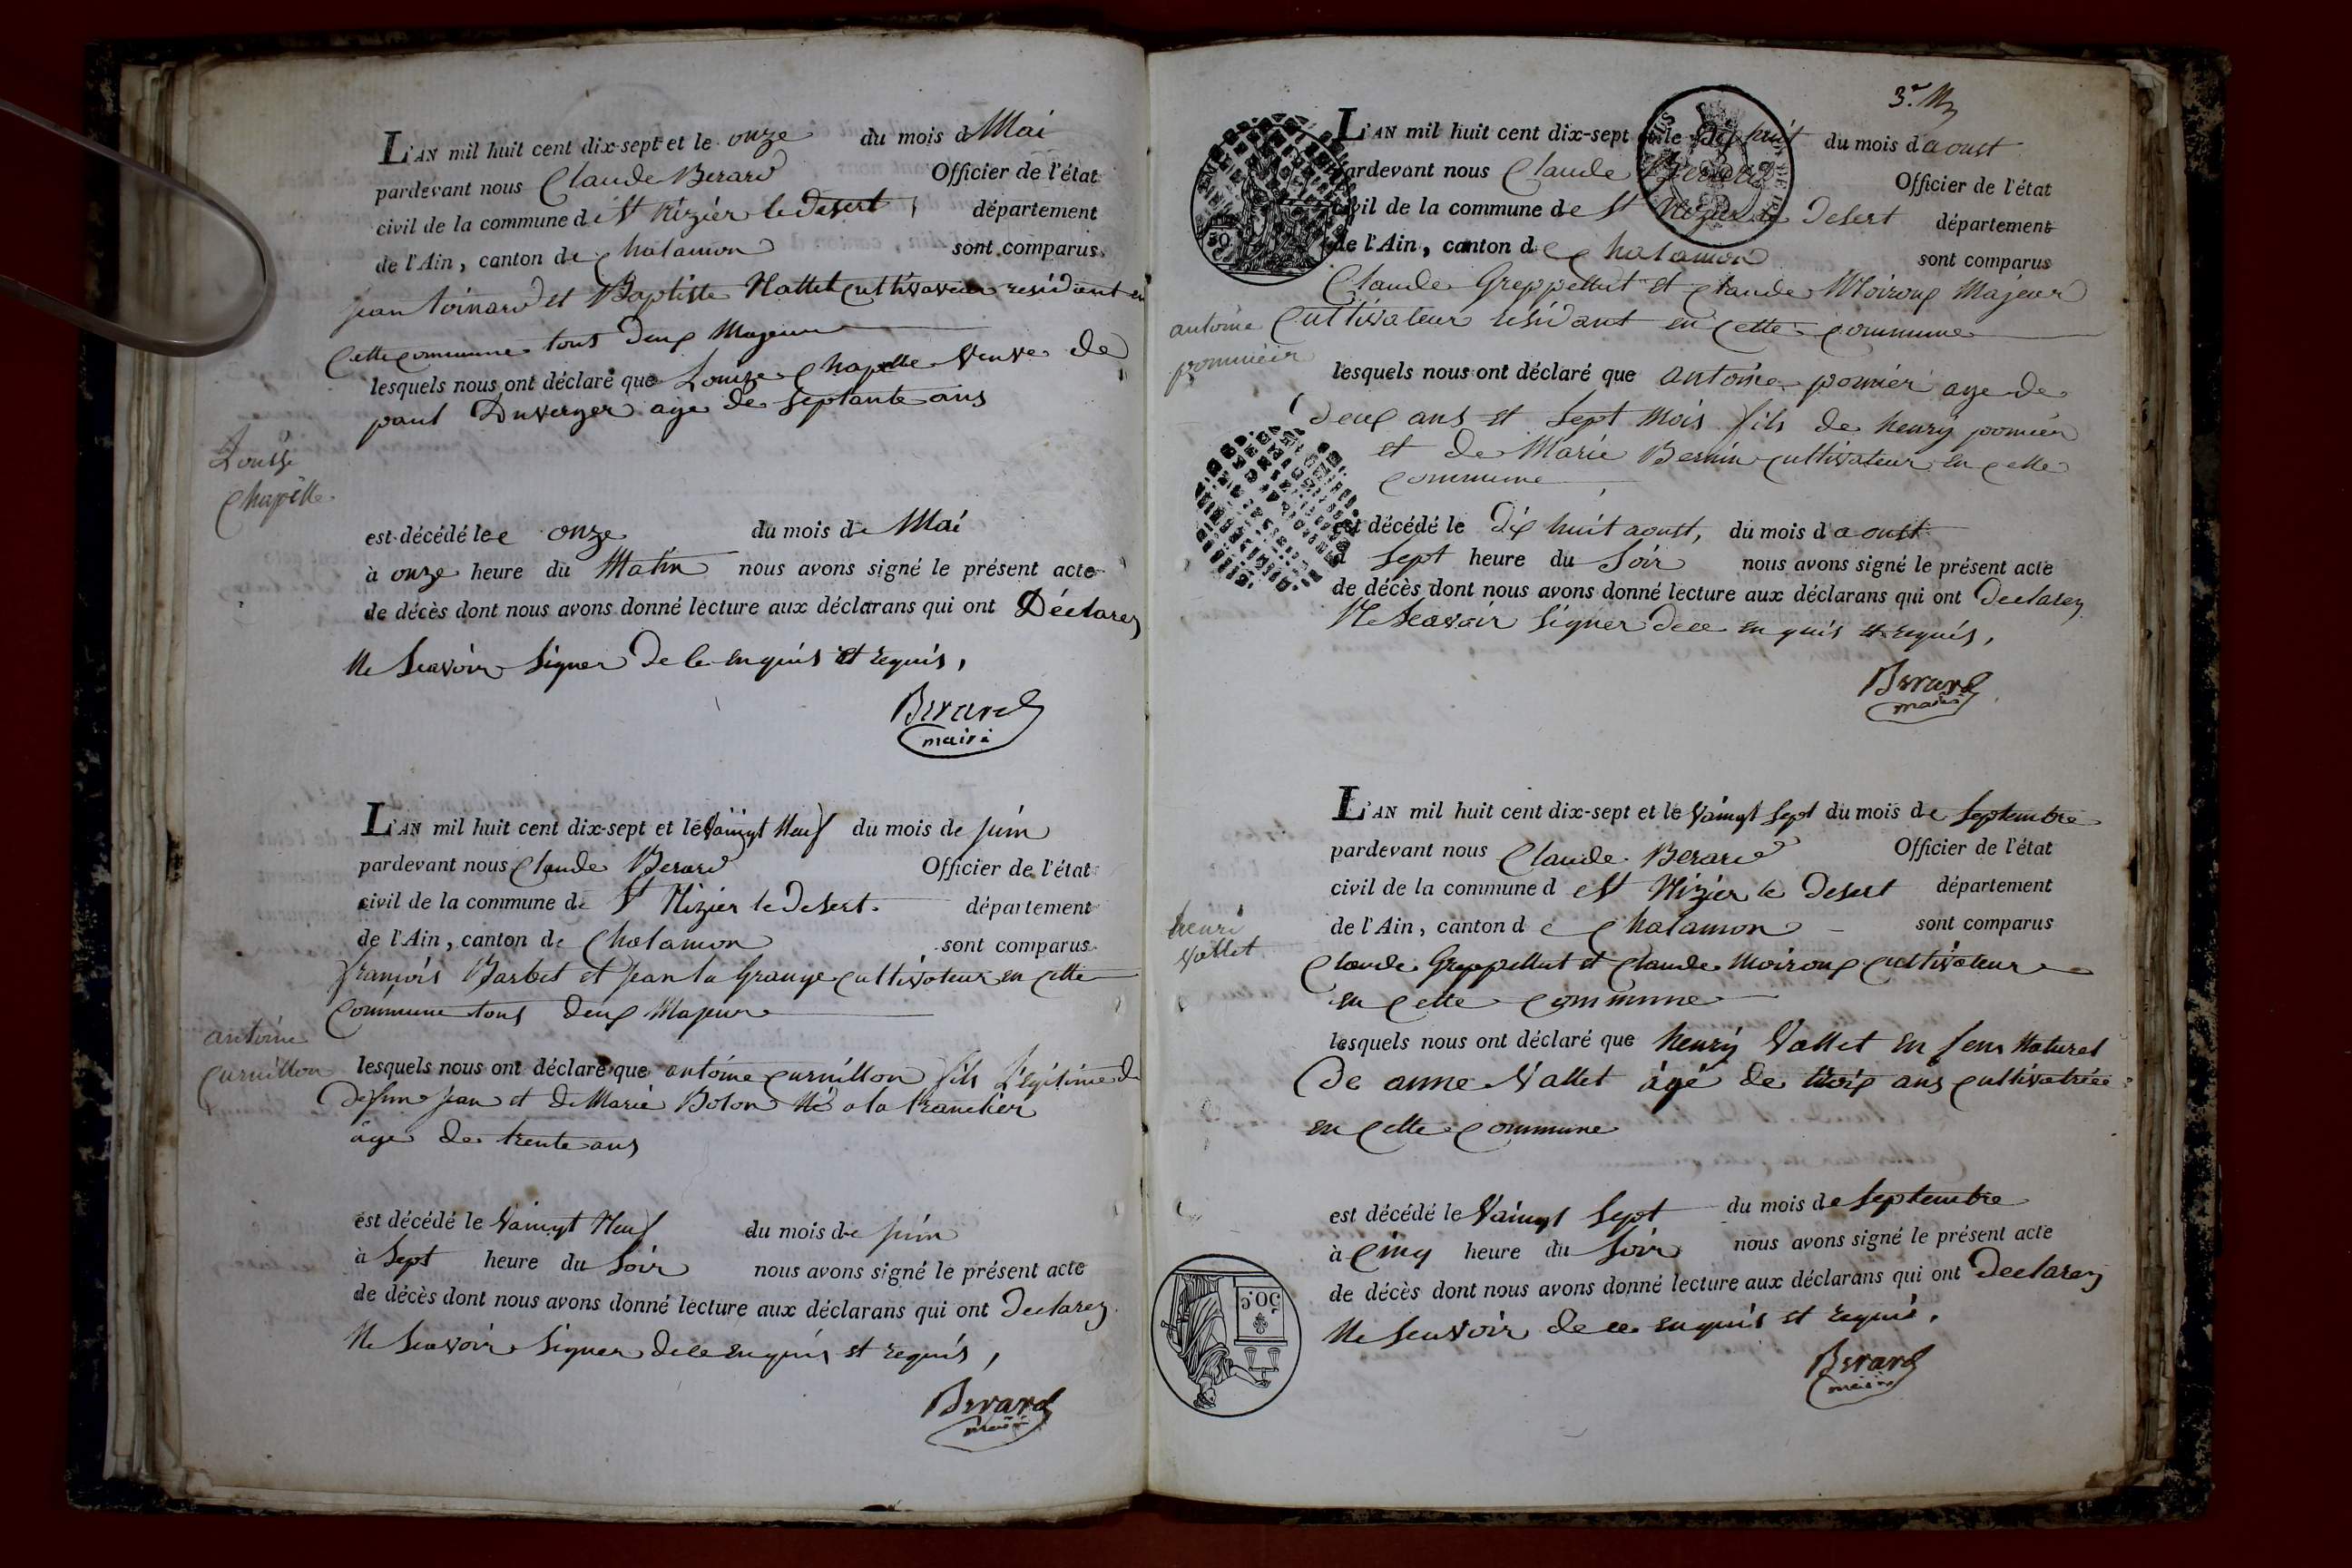 L'AN mil huit cent dix-sept et le onze du mois d Mai
pardevant nous Claude Berard Officier de l'état
civil de la commune de St Nizier le Desert, département
de l'Ain, canton de Chalamon sont comparus
jean toinard et Baptiste Nallet cultivateur residant en
Cette commune tous deux Majeur
lesquels nous ont déclaré que Louise Chapelle Veuve de
paul Duverger age de septante ans
Louise
Chapelle
est décédé lee onze du mois de Mai
à onze heure du Matin nous avons signé le présent acte
de décès dont nous avons donné lecture aux déclarans qui ont Déclarez
Ne Seavoir Signer De ce enquis et requis,
Berard
maire
L'AN mil huit cent dix-sept et le Vaingt Neuf du mois de juin
pardevant nous Claude Berard Officier de l'état
civil de la commune de St Nizier le Desert. département
de l'Ain, canton de Chalamon sont comparus
françois Barbet et jean la Grange cultivateur en cette
Commune tous deux Majeur
antoine
Curnillon
lesquels nous ont déclaré que antoine curnillon fils Légitime de
defun jean et de Marie Bolon Né a la tranclier
âge de trente ans
est décédé le Vaingt Neuf du mois de juin
à Sept heure du Soir nous avons signé le présent acte
de décès dont nous avons donné lecture aux déclarans qui ont Declarez
Ne Seavoir Signer de ce enquis et requis,
Berard
maire
3.e M
L'AN mil huit cent dix-sept et le dix huit du mois d'aoust
pardevant nous Claude Berard Officier de l'état
civil de la commune de St Nizier le Desert département
de l'Ain, canton de Chalamon sont comparus
Claude Greppellut et Claude Moiroux Majeur
Cultivateur residant en cette commune
antoine
pommier
lesquels nous ont déclaré que antoine pomier age de
deux ans et Sept Mois fils de henry pomier
et de Marie Bernin cultivateur en cette
commune
est décédé le Dix huit aoust, du mois d'aoust
à Sept heure du Soir nous avons signé le présent acte
de décès dont nous avons donné lecture aux déclarans qui ont Declarez
Ne Seavoir Signer de ce enquis et requis,
Berard
maire
L'AN mil huit cent dix-sept et le Vaingt Sept du mois de Septembre
pardevant nous Claude Berard Officier de l'état
civil de la commune d e St Nizier le Desert département
de l'Ain, canton d e Chalamon sont comparus
henri
Vallet
Claude Greppellut et Claude Moiroux cultivateur
en cette commune
lesquels nous ont déclaré que henry Vallet en fans Naturel
De anne Vallet âgé de troix ans cultivatrice
en cette commune
est décédé le Vaingt Sept du mois de Septembre
à Cinq heure du Soir nous avons signé le présent acte
de décès dont nous avons donné lecture aux déclarans qui ont Declarez
Ne Seavoir de ce enquis et requis.
50.C
Berard
maire